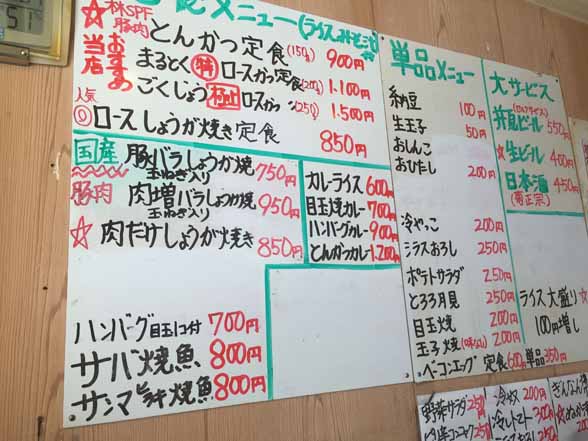 メニュー(ライスみそ汁
☆林SPF豚肉
当店おすすめ
とんかつ定食(150g) 900円
まるとく(特)ロースカツ定食(200g) 1.100円
ごくじょう極上ロースカツ (250) 1.500円
人気
◎ロースしょうが焼き定食 850円
国産豚肉
豚バラしょうが焼 750円
玉ねぎ入り
肉増バラしょうが焼 950円
玉ねぎ入り
☆肉だけしょうが焼き 850円
カレーライス 600円
目玉焼カレー 700円
ハンバーグカレー 900円
とんかつカレー 1.200円
ハンバーグ目玉1コ付 700円
サバ焼魚 800円
サンマ 焼魚 800円
単品メニュー
納豆 100円
生玉子 50円
おしんこ
おひたし 200円
冷やっこ 200円
シラスおろし 250円
ポテトサラダ 250円
とろろ月見 250円
目玉焼 200円
玉子焼 200円
ベーコンエッグ 定食600円 単品350円
大サービス
瓶ビール 550円
☆生ビール 400円
日本酒 450円
(菊正宗)
ライス大盛り☆
100円増し
野菜サラダ 250
冷奴 200円
冷しトマト 300
ぎんなん